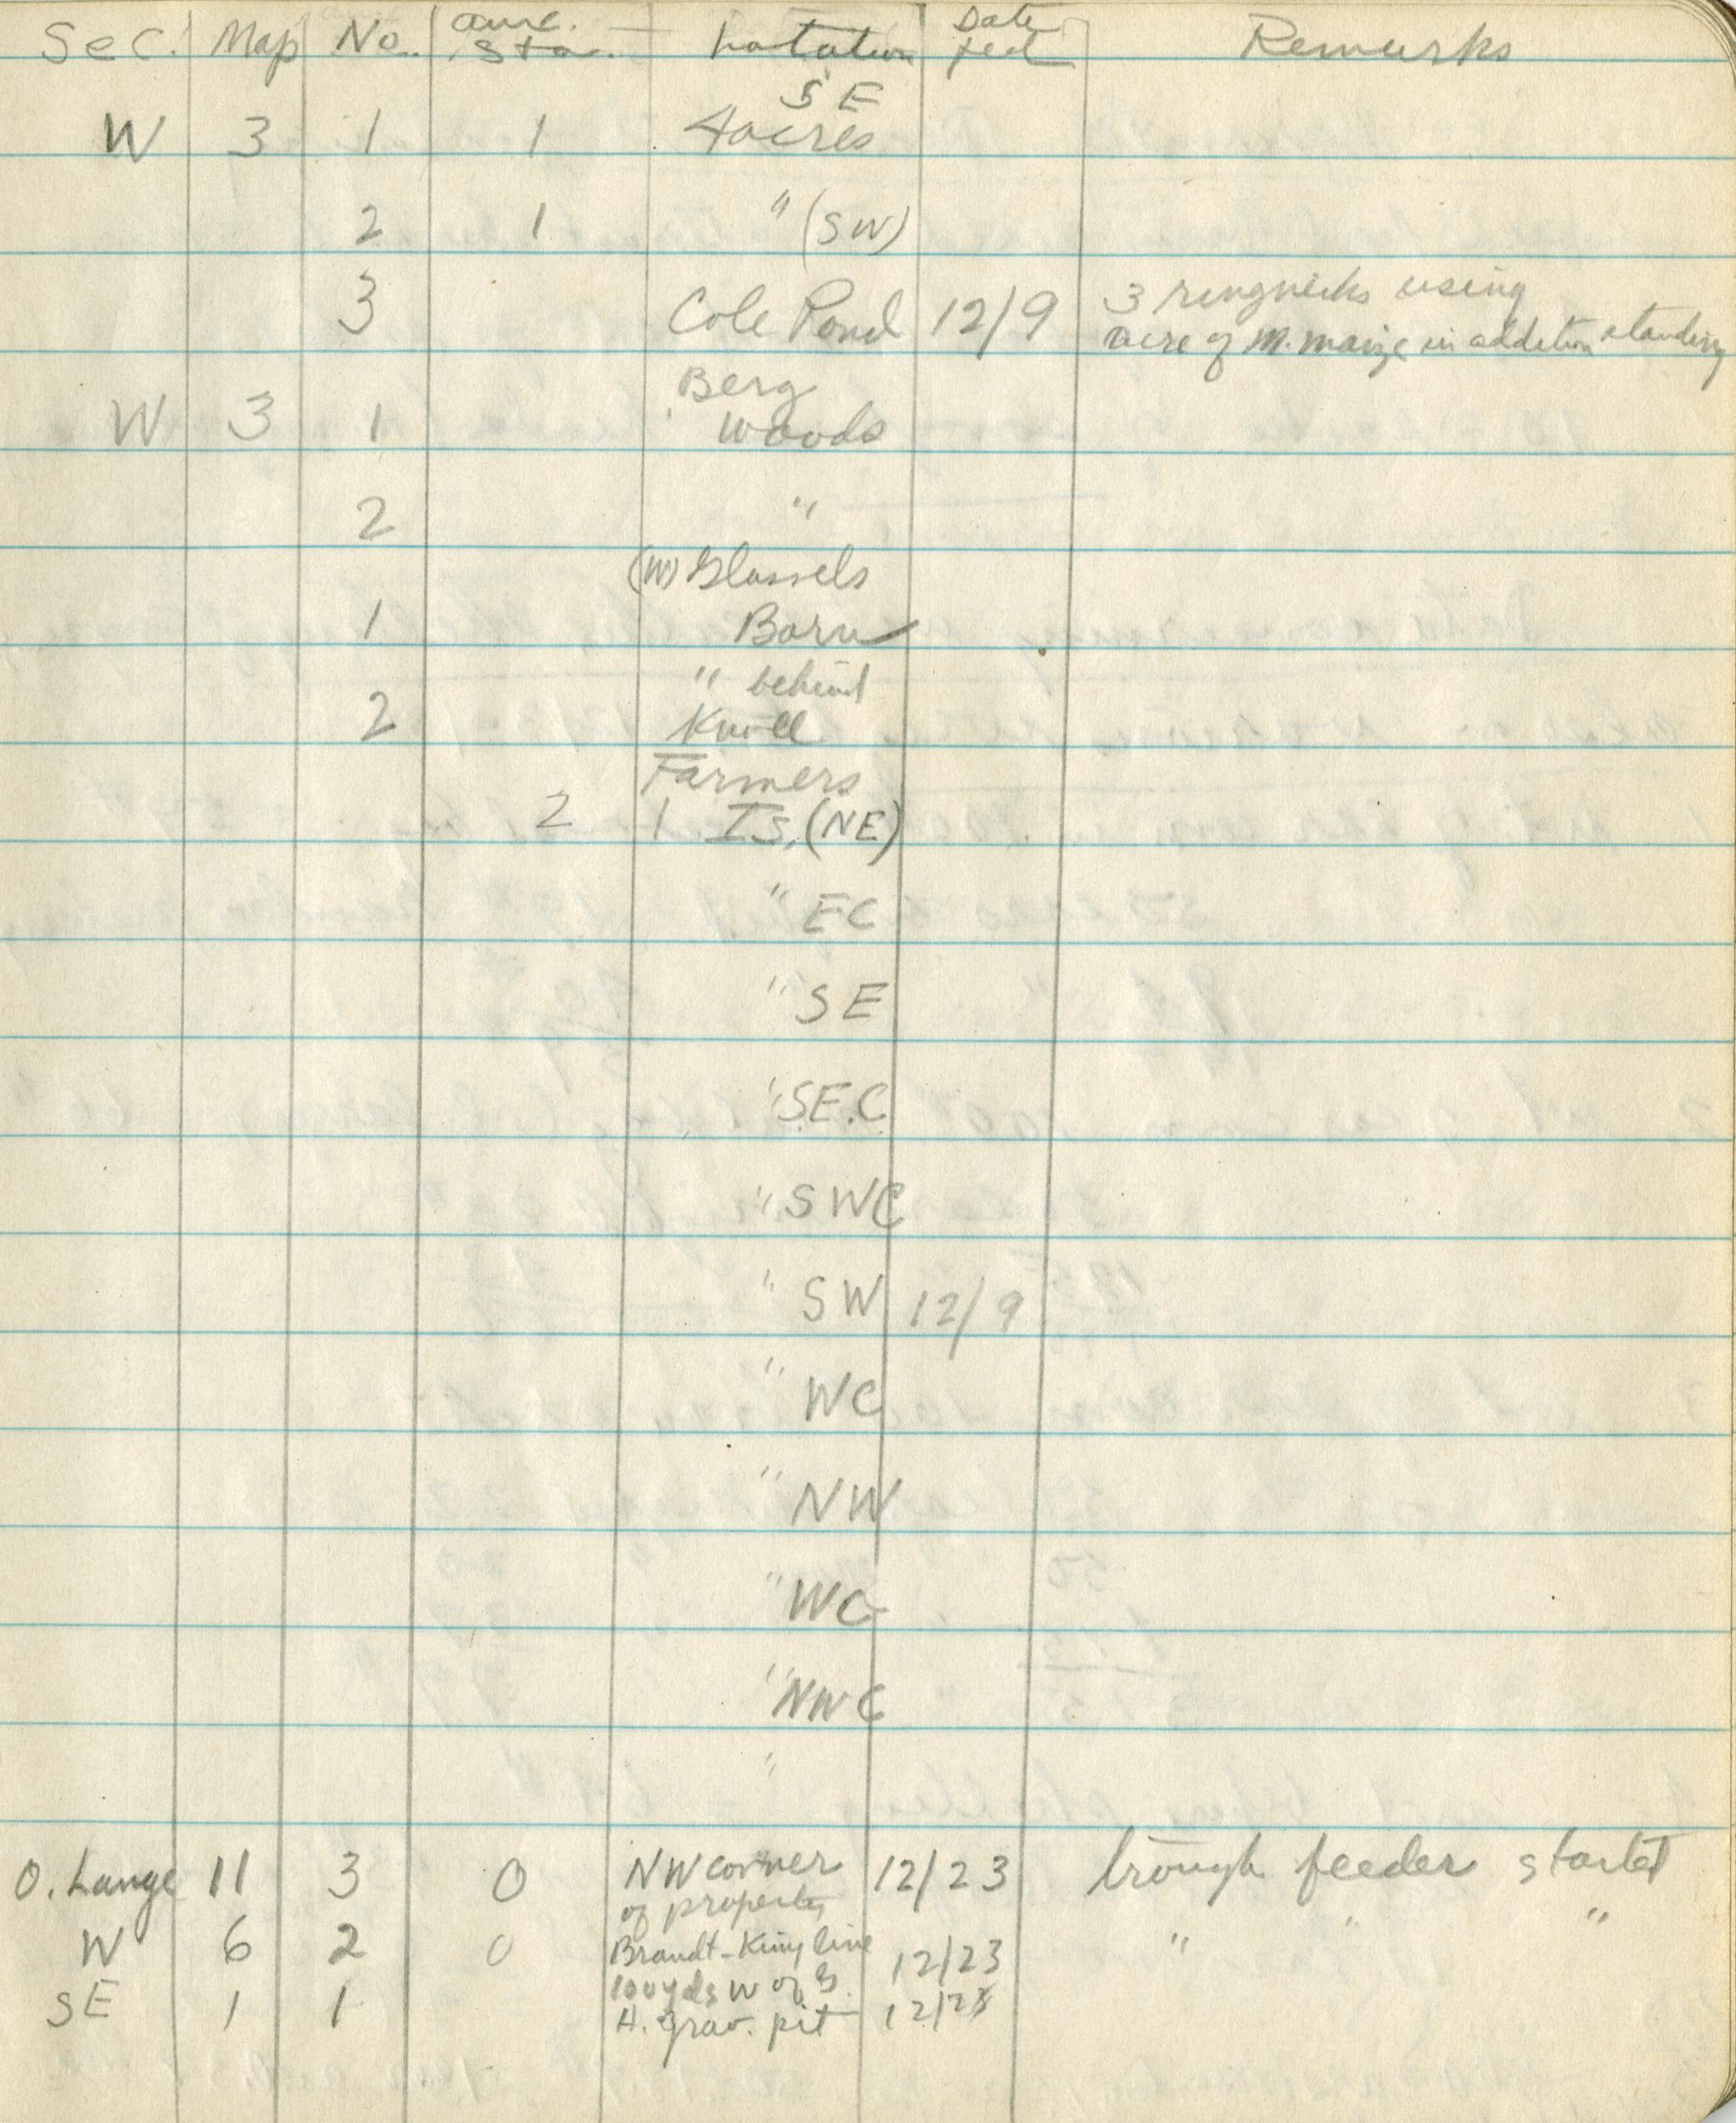 Sec. Map No. Date
Sta. Location fed Remarks
SE
W 3 1 1 4acres
2 1 " (SW)
3 Cole Pond 12/9 3 ringnecks using
acre of M. maize in addition standing
Berg
W 3 1 Woods
2 "
(W) Glassels
1 Barn
" behind
2 Knoll
Farmers
2 1 Is. (NE)
" EC
" SE
" S.E.C.
" SWC
" SW 12/9
" WC
" NW
" WC
" NWC
"
O. Lange 11 3 0 NW corner 12/23 trough feeder started
of property
W 6 2 0 Brandt-King line 12/23 " " "
100 yds W of G.
SE 1 1 H. grav. pit 12/23